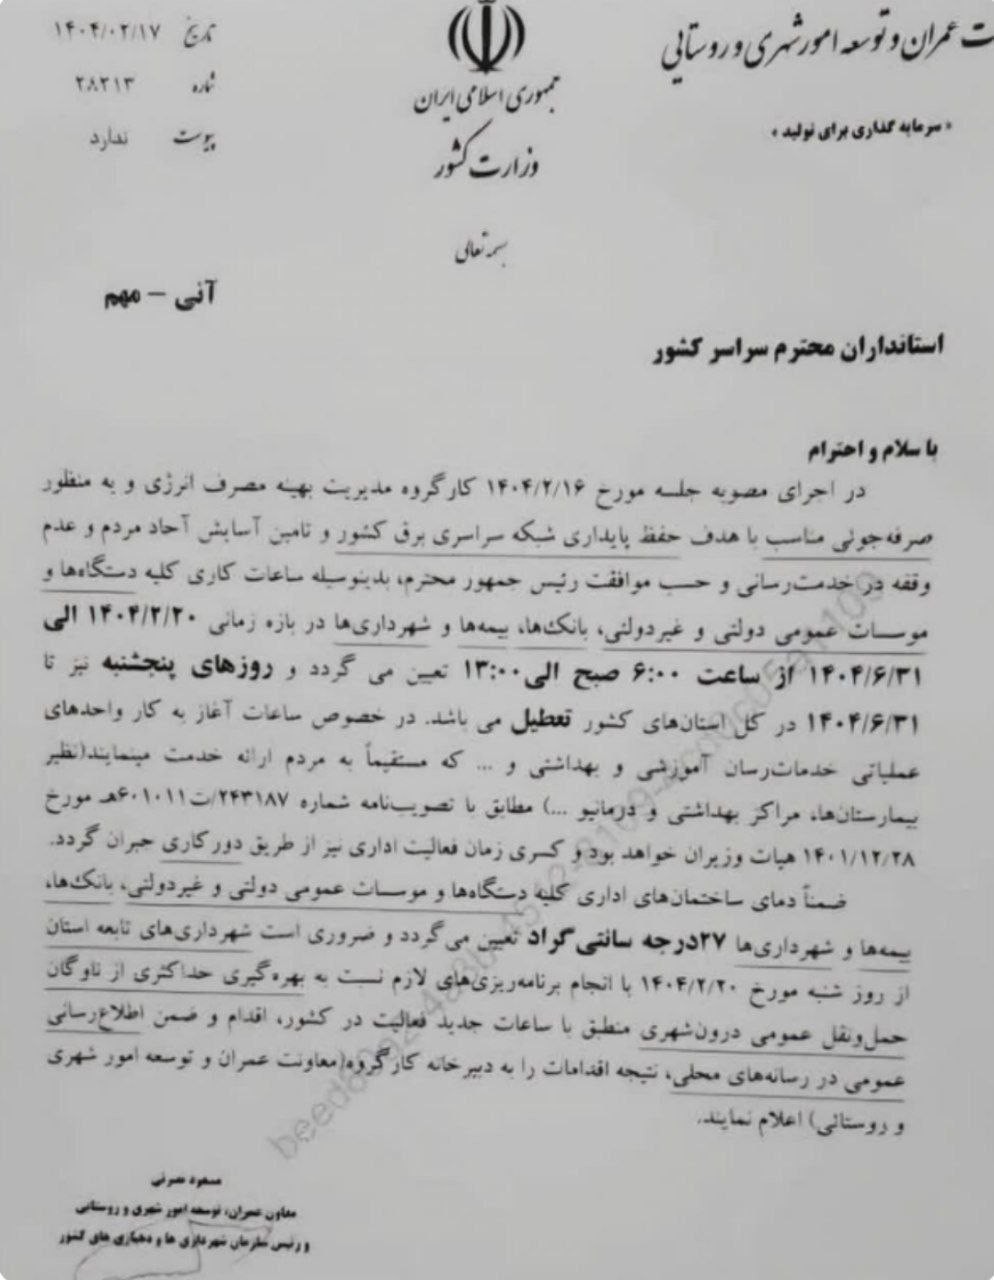 ت عمران و توسعه امور شهری و روستایی
« سرمایه گذاری برای تولید »
جمهوری اسلامی ایران
وزارت کشور
تاریخ ۱۴۰۴/۰۲/۱۷
شماره ۲۸۲۱۳
پیوست ندارد
بسمه تعالی
آنی – مهم
استانداران محترم سراسر کشور
با سلام و احترام
در اجرای مصوبه جلسه مورخ ۱۴۰۴/۲/۱۶ کارگروه مدیریت بهینه مصرف انرژی و به منظور
صرفه‌جوئی مناسب با هدف حفظ پایداری شبکه سراسری برق کشور و تامین آسایش آحاد مردم و عدم
وقفه در خدمت‌رسانی و حسب موافقت رئیس جمهور محترم، بدینوسیله ساعات کاری کلیه دستگاه‌ها و
موسسات عمومی دولتی و غیردولتی، بانک‌ها، بیمه‌ها و شهرداری‌ها در بازه زمانی ۱۴۰۴/۲/۲۰ الی
۱۴۰۴/۶/۳۱ از ساعت ۶:۰۰ صبح الی۱۳:۰۰ تعیین می گردد و روزهای پنجشنبه نیز تا
۱۴۰۴/۶/۳۱ در کل استان‌های کشور تعطیل می باشد. در خصوص ساعات آغاز به کار واحدهای
عملیاتی خدمات‌رسان آموزشی و بهداشتی و ... که مستقیماً به مردم ارائه خدمت مینمایند(نظیر
بیمارستان‌ها، مراکز بهداشتی و درمانیو ...) مطابق با تصویب‌نامه شماره ۲۴۳۱۸۷/ت۶۰۱۰۱۱هـ مورخ
۱۴۰۱/۱۲/۲۸ هیات وزیران خواهد بود و کسری زمان فعالیت اداری نیز از طریق دورکاری جبران گردد.
ضمناً دمای ساختمان‌های اداری کلیه دستگاه‌ها و موسسات عمومی دولتی و غیردولتی، بانک‌ها،
بیمه‌ها و شهرداری‌ها ۲۷درجه سانتی‌گراد تعیین می‌گردد و ضروری است شهرداری‌های تابعه استان
از روز شنبه مورخ ۱۴۰۴/۲/۲۰ با انجام برنامه‌ریزی‌های لازم نسبت به بهره‌گیری حداکثری از ناوگان
حمل‌ونقل عمومی درون‌شهری منطبق با ساعات جدید فعالیت در کشور، اقدام و ضمن اطلاع‌رسانی
عمومی در رسانه‌های محلی، نتیجه اقدامات را به دبیرخانه کارگروه(معاونت عمران و توسعه امور شهری
و روستائی) اعلام نمایند.
مسعود نصرتی
معاون عمران، توسعه امور شهری و روستایی
و رئیس سازمان شهرداری ها و دهیاری های کشور